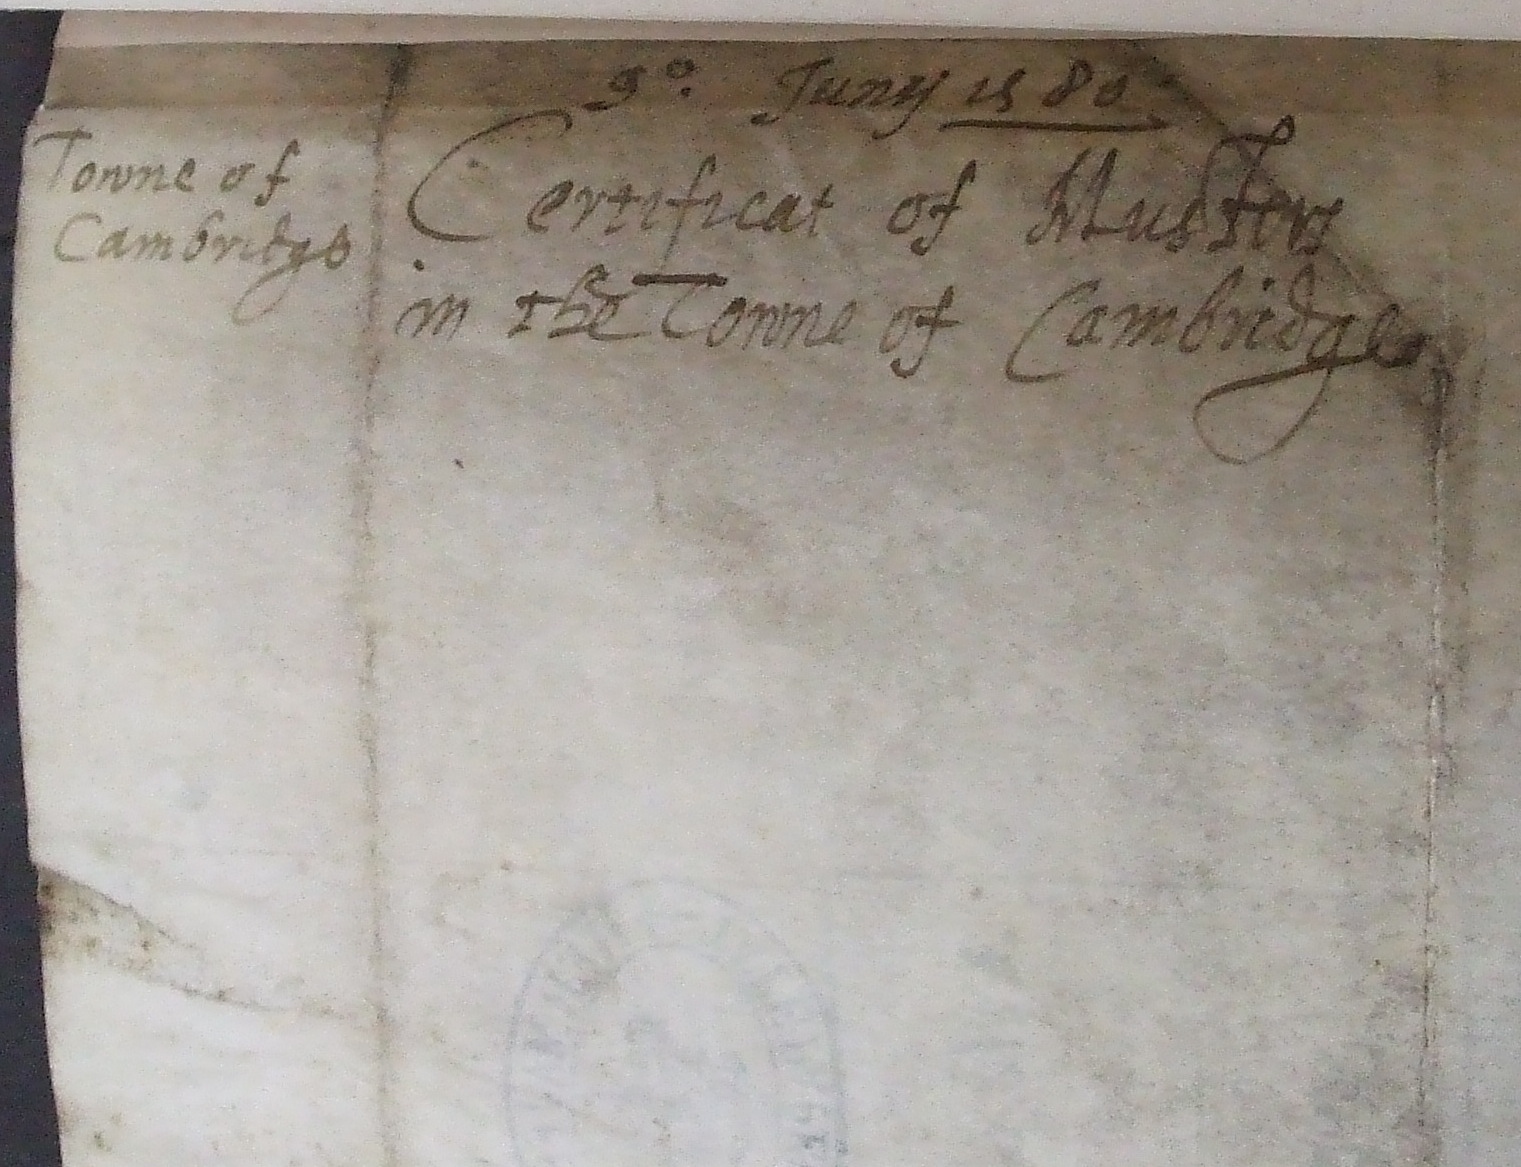 9o. Junij 1580
Towne of
Cambridge
Certificat of Musters
in the Towne of Cambridge